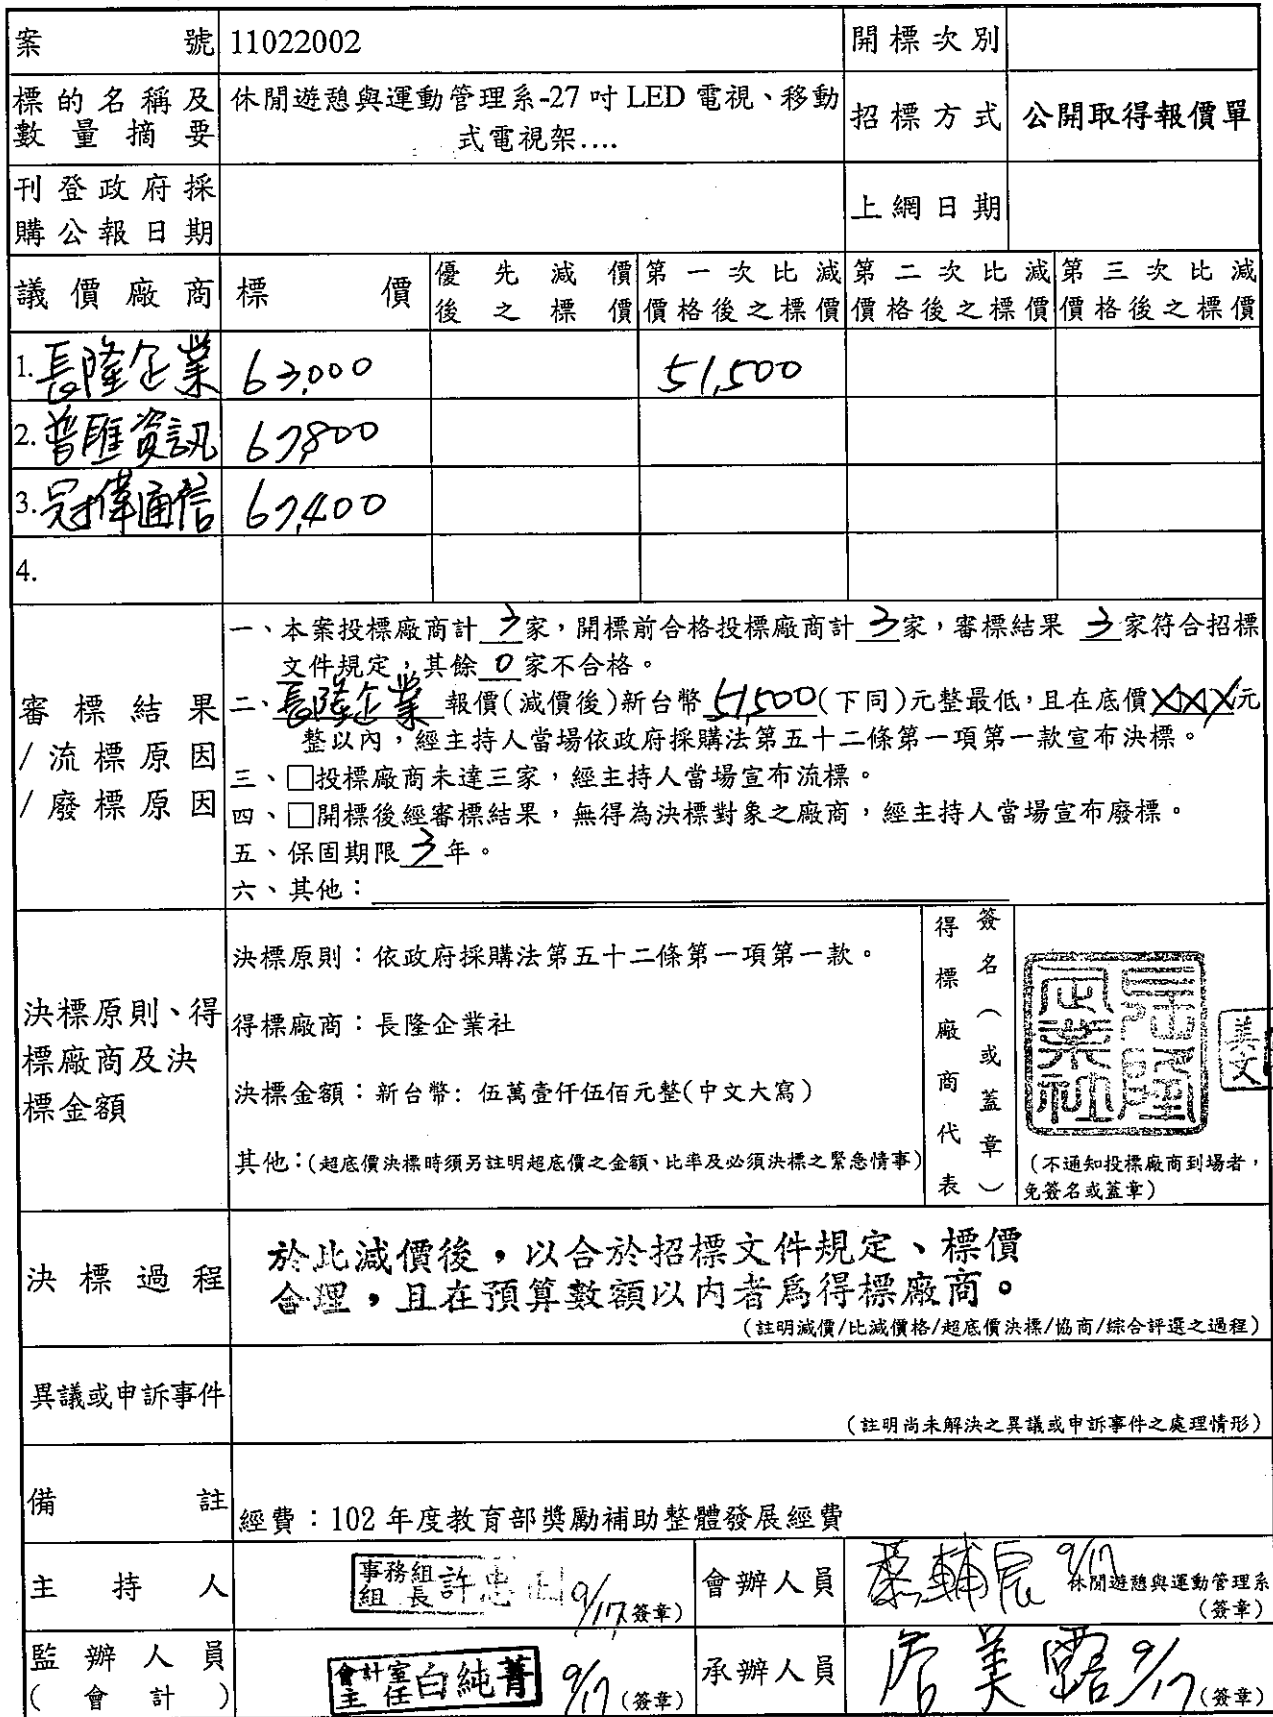 案 號 11022002 開標次別
標的名稱及數量摘要 休閒遊憩與運動管理系-27吋LED電視、移動 招標方式 公開取得報價單
式電視架....
刊登政府採購公報日期 上網日期
議價廠商 標 價 優先減價後之標價 第一次比減價格後之標價 第二次比減價格後之標價 第三次比減價格後之標價
1.長隆企業 63,000 51,500
2.普匯資訊 67,800
3.冠偉通信 67,400
4.
審標結果/流標原因/廢標原因
一、本案投標廠商計 3 家,開標前合格投標廠商計 3 家,審標結果 3 家符合招標
文件規定,其餘 0 家不合格。
二、長隆企業 報價(減價後)新台幣 51,500(下同)元整最低,且在底價XXX元
整以內,經主持人當場依政府採購法第五十二條第一項第一款宣布決標。
三、□投標廠商未達三家,經主持人當場宣布流標。
四、□開標後經審標結果,無得為決標對象之廠商,經主持人當場宣布廢標。
五、保固期限 3 年。
六、其他:
決標原則、得標廠商及決標金額
決標原則:依政府採購法第五十二條第一項第一款。
得標廠商:長隆企業社
決標金額:新台幣: 伍萬壹仟伍佰元整(中文大寫)
其他:(超底價決標時須另註明超底價之金額、比率及必須決標之緊急情事)
得標廠商代表
簽名(或蓋章)
長隆企業社
美文
(不通知投標廠商到場者,
免簽名或蓋章)
決標過程
於比減價後,以合於招標文件規定、標價
合理,且在預算數額以內者為得標廠商。
(註明減價/比減價格/超底價決標/協商/綜合評選之過程)
異議或申訴事件
(註明尚未解決之異議或申訴事件之處理情形)
備 註 經費:102年度教育部獎勵補助整體發展經費
主持人 事務組組長許忠 9/17 (簽章) 會辦人員 輔辰 9/17 休閒遊憩與運動管理系
(簽章)
監辦人員(會計) 會計室主任白純菁 9/17 (簽章) 承辦人員 詹美露 9/17 (簽章)